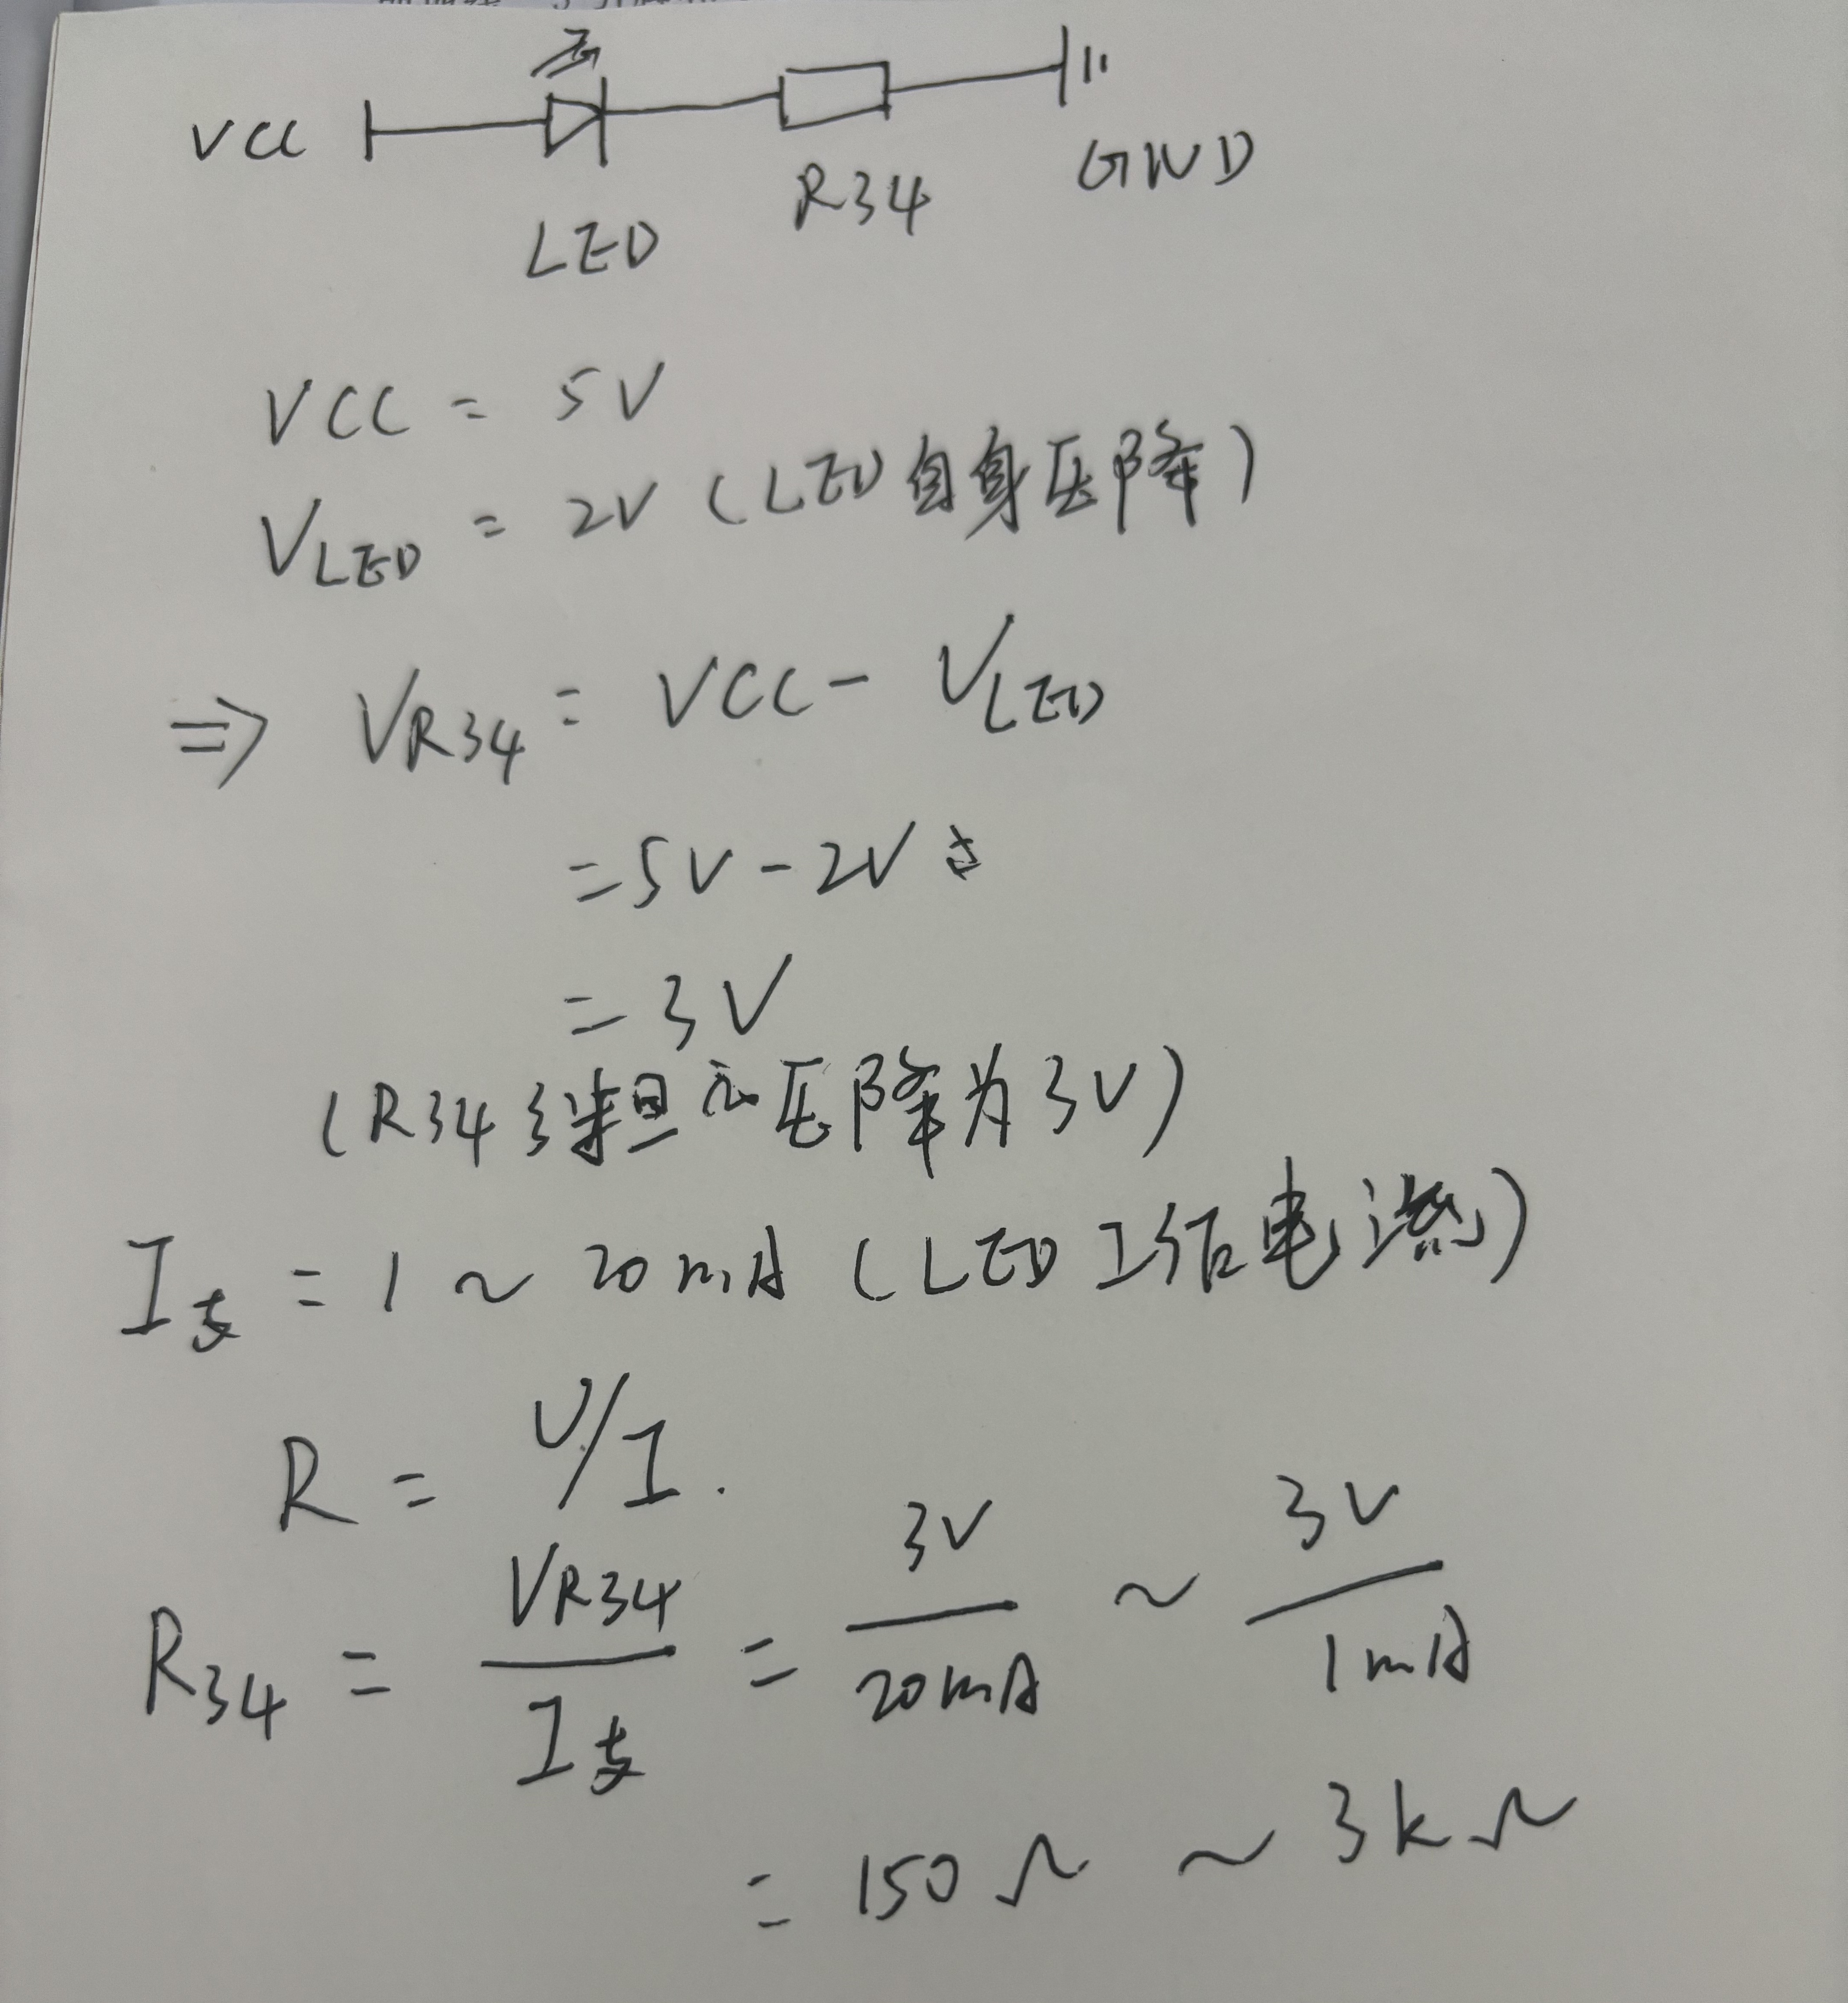 VCC
LED
R34
GND
VCC = 5V
VLED = 2V (LED自身压降)
⇒ VR34 = VCC - VLED
= 5V - 2V
= 3V
(R34 压降为3V)
I支 = 1 ~ 20mA (LED工作电流)
R = U/I.
R34 = VR34/I支 = 3V/20mA ~ 3V/1mA
= 150Ω ~ 3kΩ